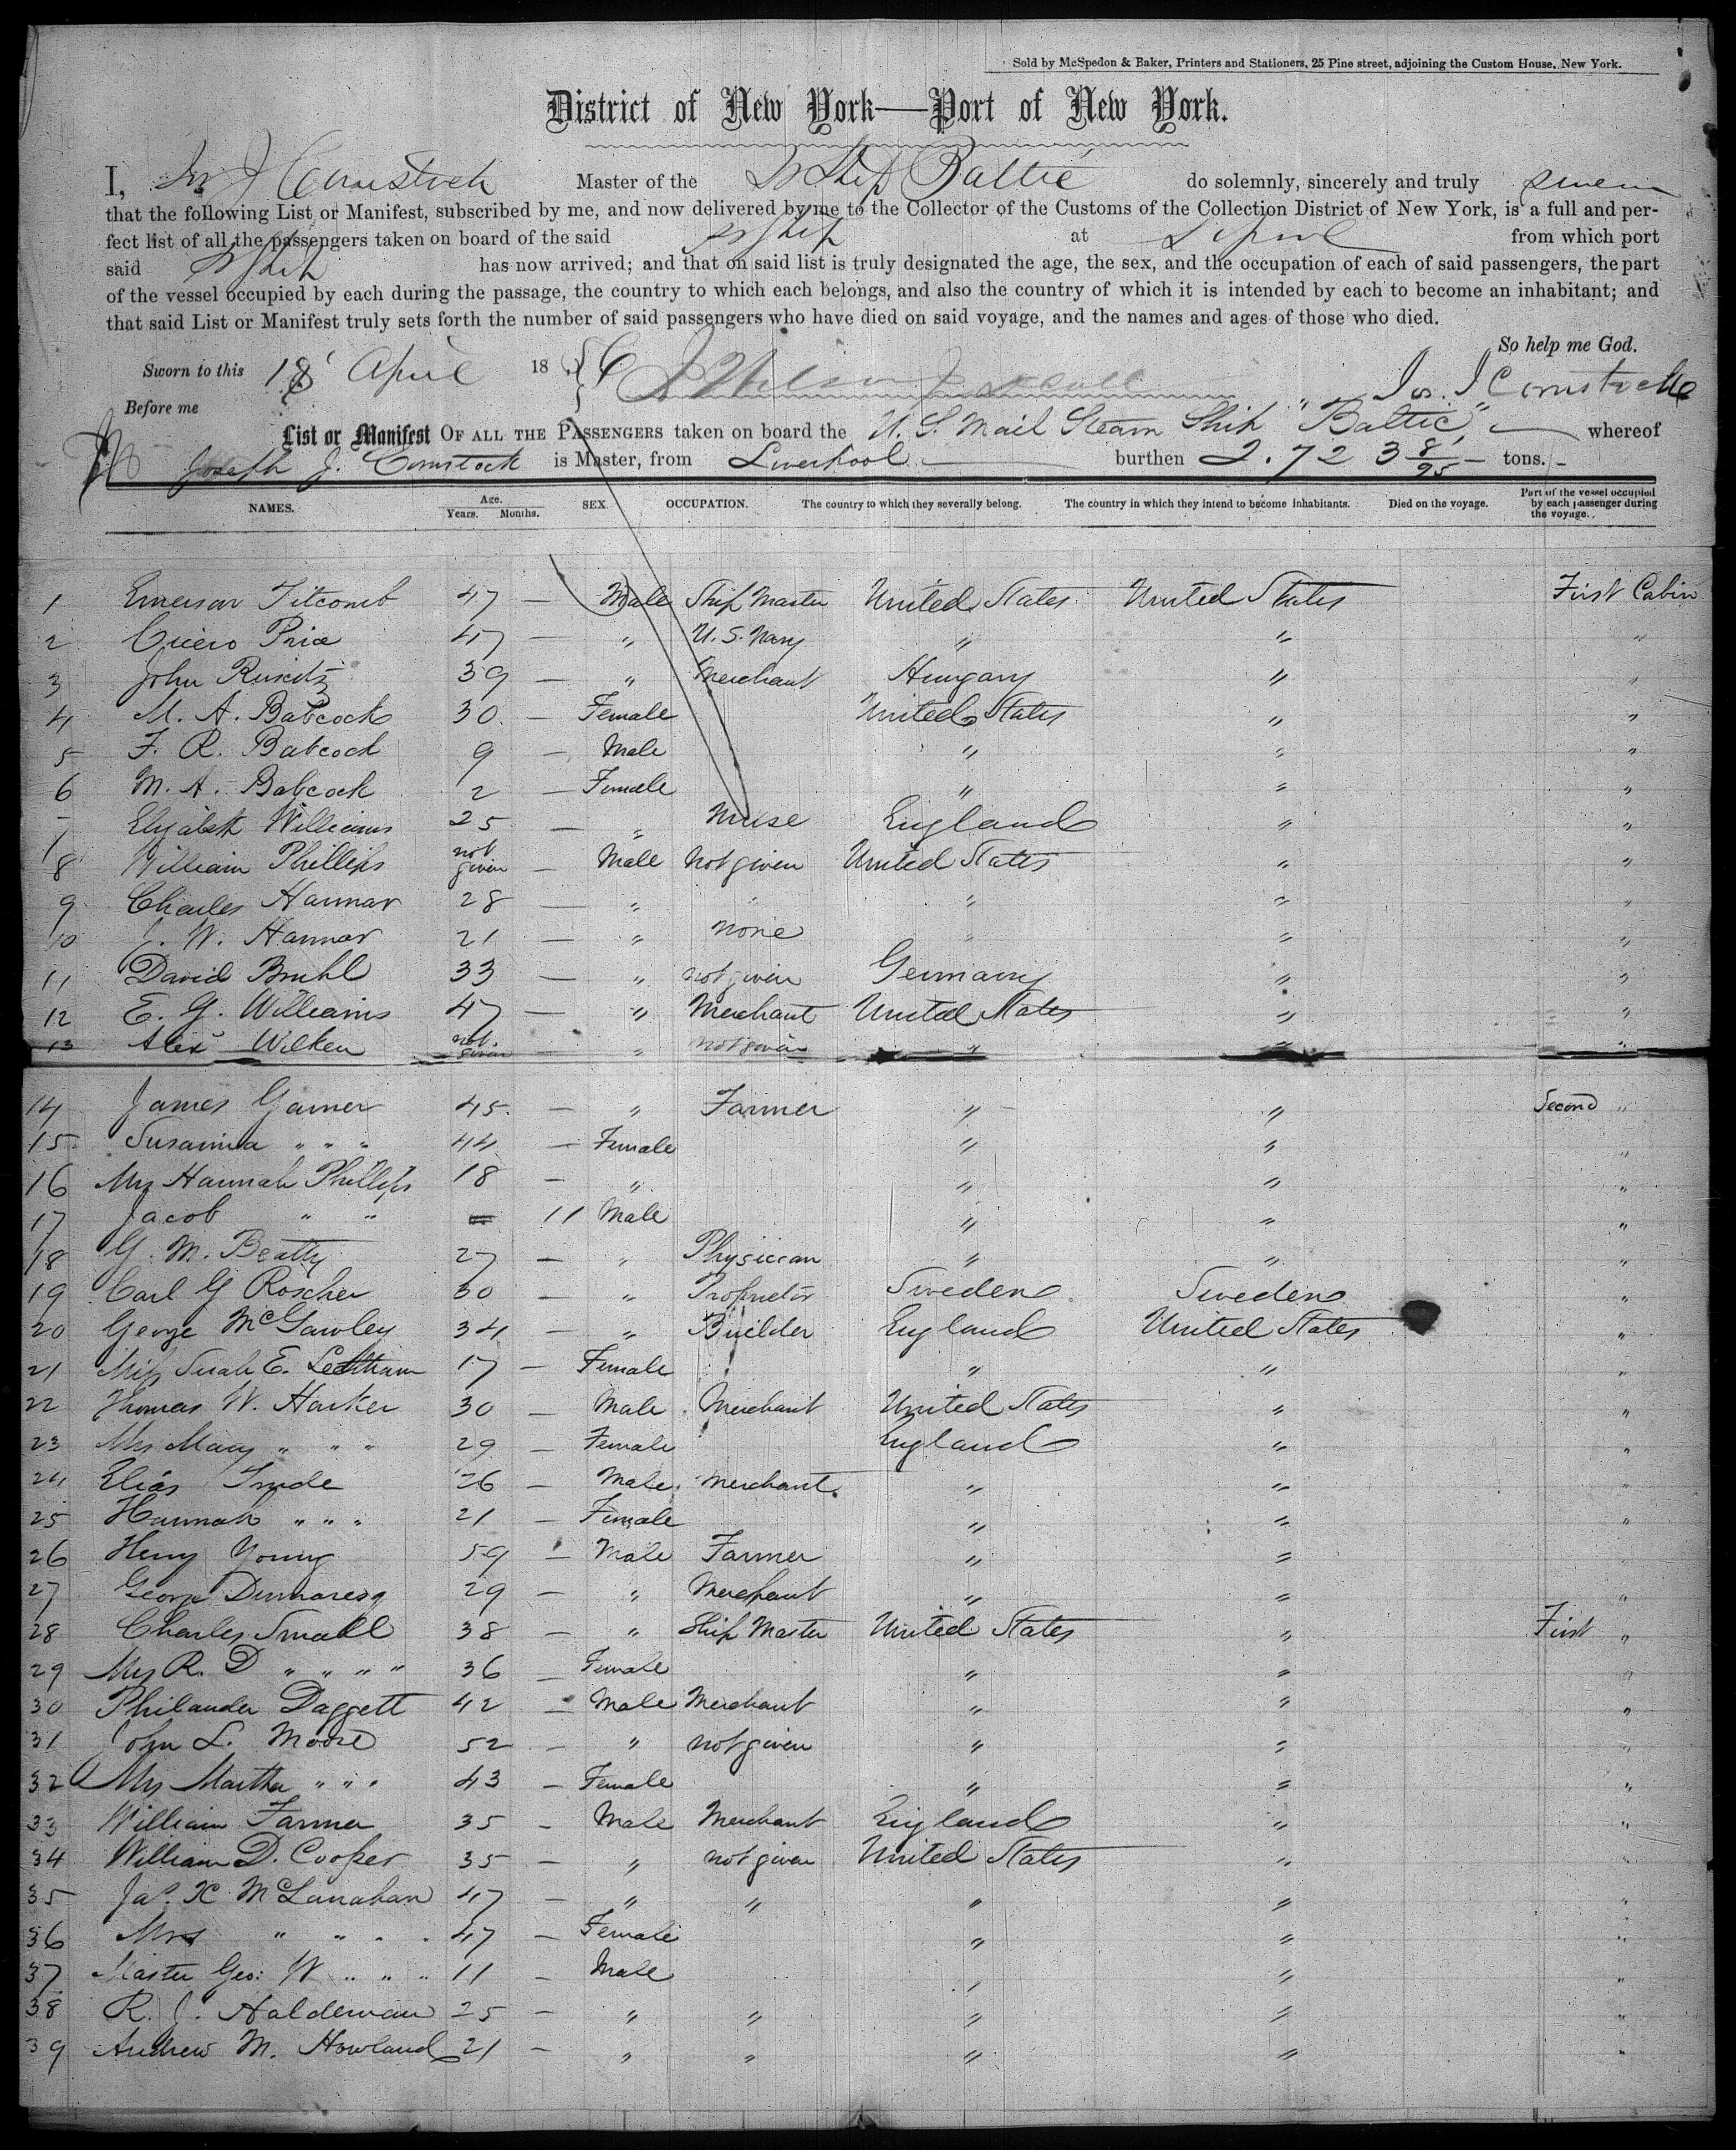 Sold by McSpedon & Baker, Printers and Stationers, 25 Pine street, adjoining the Custom House, New York.
District of New York—Port of New York.
I, Jos J Comstock Master of the S Ship Baltic do solemnly, sincerely and truly swear
that the following List or Manifest, subscribed by me, and now delivered by me to the Collector of the Customs of the Collection District of New York, is a full and per-
fect list of all the passengers taken on board of the said S Ship at Lpool from which port
said S Ship has now arrived; and that on said list is truly designated the age, the sex, and the occupation of each of said passengers, the part
of the vessel occupied by each during the passage, the country to which each belongs, and also the country of which it is intended by each to become an inhabitant; and
that said List or Manifest truly sets forth the number of said passengers who have died on said voyage, and the names and ages of those who died.
So help me God.
Sworn to this 18 April 1856
Jos. J Comstock
Before me
List or Manifest OF ALL THE PASSENGERS taken on board the U. S. Mail Steam Ship "Baltic" whereof
Joseph J. Comstock is Master, from Liverpool burthen 2.723 8/95 tons.
NAMES. Age. Years. Months. SEX. OCCUPATION. The country to which they severally belong. The country in which they intend to become inhabitants. Died on the voyage. Part of the vessel occupied by each passenger during the voyage.
1 Emerson Titcomb 47 — Male Ship Master United States United States First Cabin
2 Cicero Price 47 — " U. S. Navy " " "
3 John 39 — " Merchant Hungary " "
4 M. A. Babcock 30. — Female United States " "
5 F. R. Babcock 9 — Male " " "
6 M. A. Babcock 2 — Female " " "
7 Elizabeth Williams 25 — " Nurse England " "
8 William Phillips not given — Male Not given United States " "
9 Charles Hannar 28 — " " " " "
10 J. W. Hannar 21 — " None " " "
11 David Bruhl 33 — " not given Germany " "
12 E. G. Williams 47 — " Merchant United States " "
13 Alex Wilken not given — " not given " " "
14 James Garner 45. — " Farmer " " Second "
15 Susanna " " " 44 — Female " " "
16 Mrs Hannah Phillips 18 — " " " "
17 Jacob " " 11 Male " " "
18 G. M. Beatty 27 — " Physician " " "
19 Carl G Roscher 30 — " Proprietor Sweden Sweden "
20 George McGawley 34 — " Builder England United States "
21 Miss Sarah E. 17 — Female " " "
22 Thomas W. Harker 30 — Male Merchant United States " "
23 Mrs Mary " " " 29 — Female England " "
24 Elias 26 — Male Merchant " " "
25 Hannah " " " 21 — Female " " "
26 Henry Young 59 — Male Farmer " " "
27 George Dumaresq 29 — " Merchant " " "
28 Charles Small 38 — " Ship Master United States " First "
29 Mrs R. D " " " " 36 — Female " " "
30 Philander Daggett 42 — Male Merchant " " "
31 John L. Moore 52 — " not given " " "
32 Mrs Martha " " " 43 — Female " " "
33 William Farmer 35 — Male Merchant England " "
34 William D. Cooper 35 — " not given United States " "
35 Jas. X McLanahan 47 — " " " " "
36 Mrs " " " " 47 — Female " " "
37 Master Geo: W " " " 11 — Male " " "
38 R. J. Haldeman 25 — " " " " "
39 Andrew M. Howland 21 — " " " " "